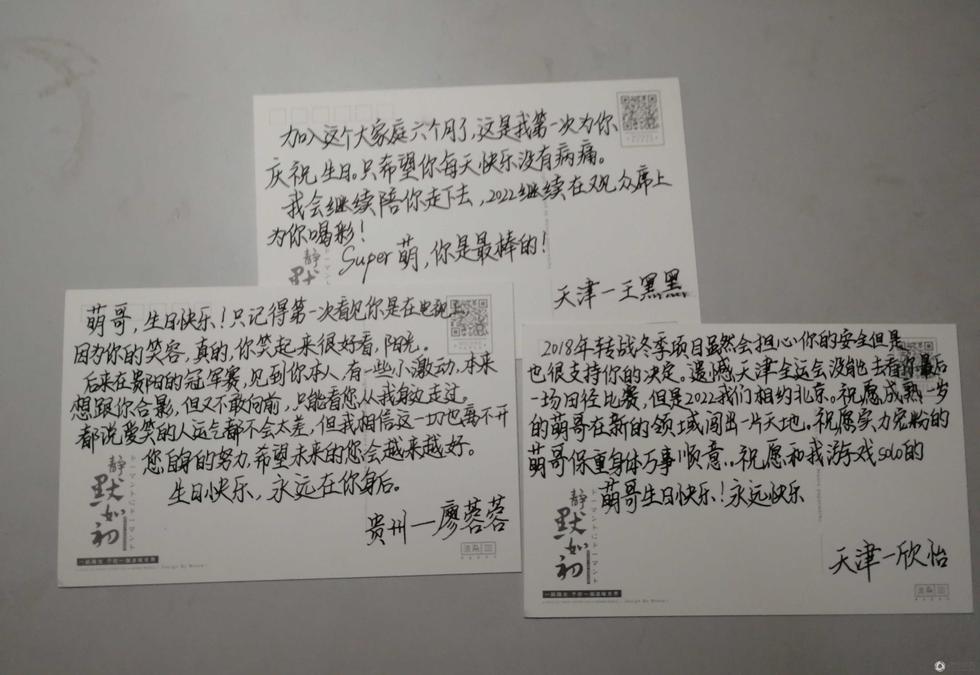 加入这个大家庭六个月了,这是我第一次为你
庆祝生日。只希望你每天快乐没有病痛。
我会继续陪你走下去,2022继续在观众席上
为你喝彩!
Super萌,你是最棒的!
天津—王黑黑
静
默
萌哥,生日快乐!只记得第一次看见你是在电视上,
因为你的笑容,真的,你笑起来很好看,阳光。
后来在贵阳的冠军赛,见到你本人,有一些小激动,本来
想跟你合影,但又不敢向前,只能看您从我身边走过。
都说爱笑的人运气都不会太差,但我相信这一切也离不开
您自身的努力,希望未来的您会越来越好。
生日快乐,永远在你身后。
贵州—廖蓉蓉
静
默如初
2018年转战冬季项目虽然会担心你的安全但是
也很支持你的决定。遗憾天津全运会没能去看你最后
一场田径比赛,但是2022我们相约北京。祝愿成熟一岁
的萌哥在新的领域闯出一片天地。祝愿实力宠粉的
萌哥保重身体万事顺意。祝愿和我游戏solo的
萌哥生日快乐!永远快乐
天津—欣怡
静
默如初